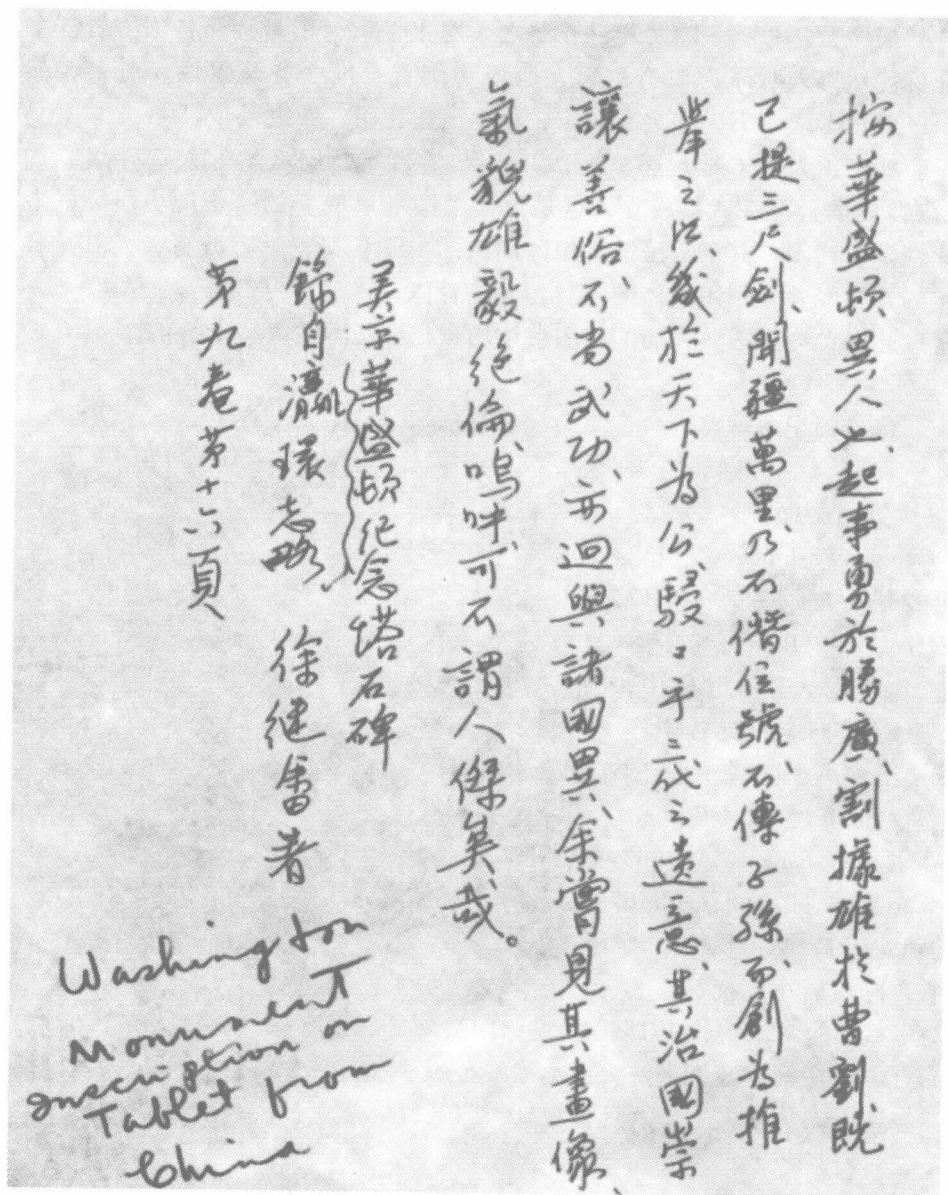 按華盛頓、異人也、起事勇於勝廣、割據雄於曹劉、既
已提三尺劍、開疆萬里、乃不僭位號、不傳子孫、而創為推
舉之法、幾於天下為公、駸々乎三代之遺意、其治國崇
讓善俗、不尚武功、亦迥與諸國異、余嘗見其畫像、
氣貌雄毅絕倫、嗚呼、可不謂人傑矣哉。
美京華盛頓纪念塔石碑
錄自瀛環志略 徐继畬著
第九卷第十六頁
Washington
Monument
Inscription on
Tablet from
China